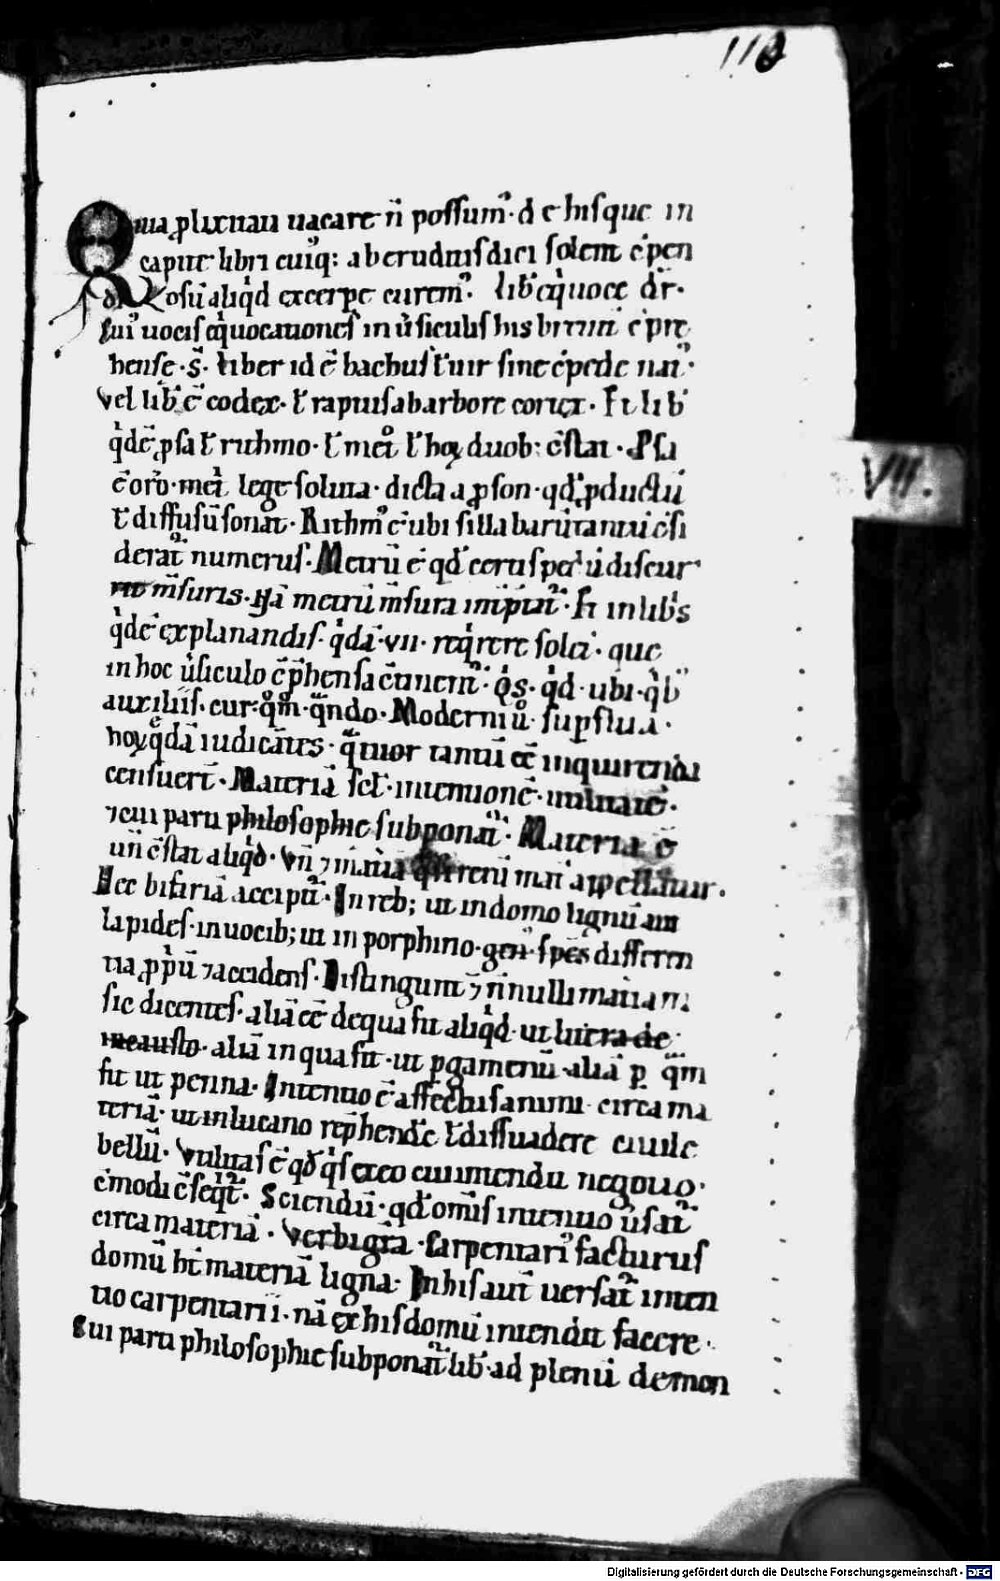 118
Quia plixitati uacare ñ possum᷒· d e hisque in
capite libri cuiq᷒: ab eruditis dici solent c̄pen
diosū aliqͥd excerpe curem᷒· lib̄ eqͥuoce dr̄·
Cui᷒ uocis eqͥuocationes in ùsiculis his breuit̄ c̄pre
hense· s̄· Liber id ē bachus ł uir sine c̄pede nati᷒·
Vel lib̄ ē codex· ł raptus ab arbore cortex· Fit lib̄
qͥdē ꝓsa ł rithmo· ł met̊ ł hoꝝ duob: c̄stat· Psa
ē orō· met lege soluta· dicta a ꝓson· qđ ꝓductū
ł diffusū sonat· Rithm᷒ ē ubi sillabarū tantū c̄si
derat᷑ numerus· Metrū ē qđ certis ped ū discur
rit m̄suris· Nā metrū m̄sura int̄p̄tat᷑· Fit in lib̄s
qͥdē explanandis· qͥdā· vii· reqͥrere solet· que
in hoc ùsiculo c̄p̄hensa c̄tinent᷑· Qͥs· qͥd· ubi· qͥb᷒
auxiliis· cur· qͦm̊· qͣndo· Moderni ů· supflua·
hoꝝ qͥdā iudicātes· qͣtuor tantū eē inquirenda
censuerт̄· Materiā scł· intentionē· utilitatē·
⁊ cui parti philosophie subponat᷑· Materia ē
un̄ c̄stat aliqͥd· Vn̄ ⁊ mat̄ia appellatur·
Hec bifariā accipit᷑· In reb; ut in domo lignū aut
lapides· in uocib; ut in porphirio· gen᷒· spēs differen
tia ꝓpͥū ⁊ accidens· Distingunt ⁊ n̄nulli mat̄iam
sic dicentes· aliā eē de qua fit aliqͥd· ut
aliā in qua fit· ut pgamenū· aliā p quͣm
fit ut penna· Intentio ē affectus animi circa ma
teriā· ut in lucano rep̄hende ł dissuadere ciuile
bellū· Vtilitas ē qđ qͥs ex eo cui intendit negotio
c̄modi c̄seqͥt᷑· Sciendū· qđ omīs intentio ùsat᷑
circa materiā· Verbi gͣtia· Carpentari᷒ facturus
domū ht̄ materiā ligna· In his aut̄ uersat᷑ inten
tio carpentarii· nā ex his domū intendit facere·
Cui parti philosophie subponat᷑ lib̄· ad plenū demon
VII.
Digitalisierung gefördert durch die Deutsche Forschungsgemeinschaft - DFG